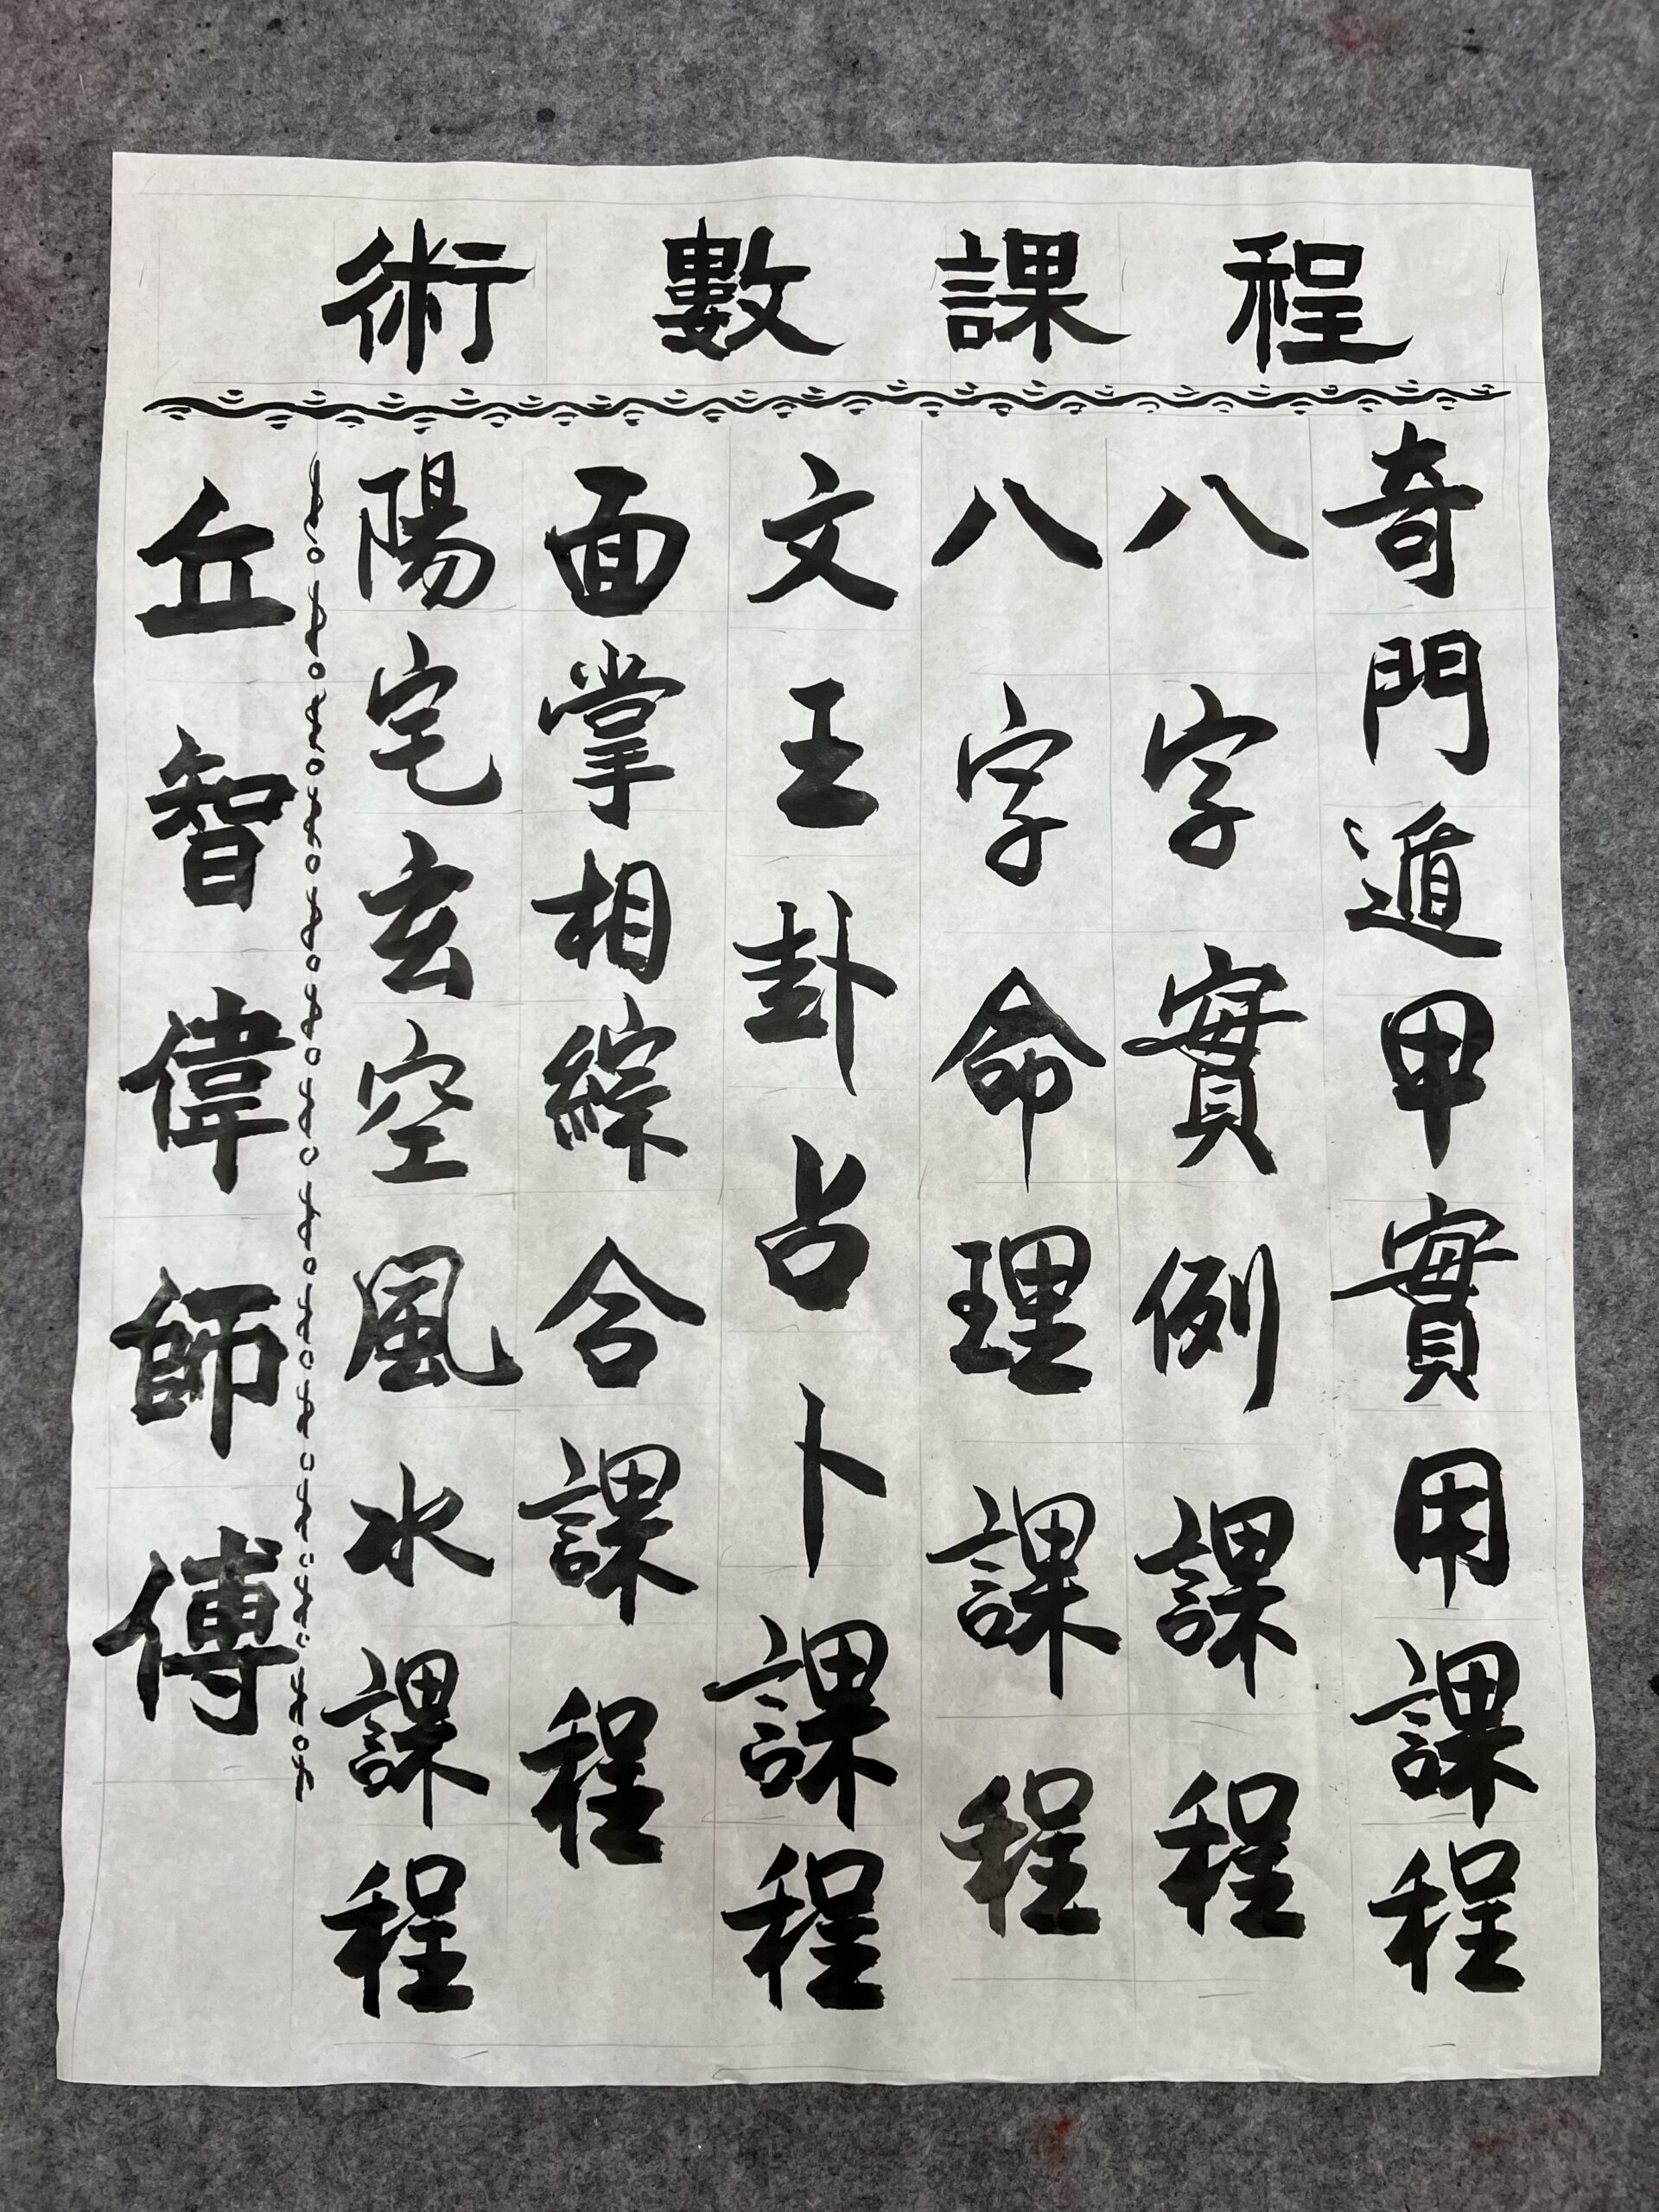 術數課程
奇門遁甲實用課程
八字實例課程
八字命理課程
文王卦占卜課程
面掌相綜合課程
陽宅玄空風水課程
丘智偉師傅